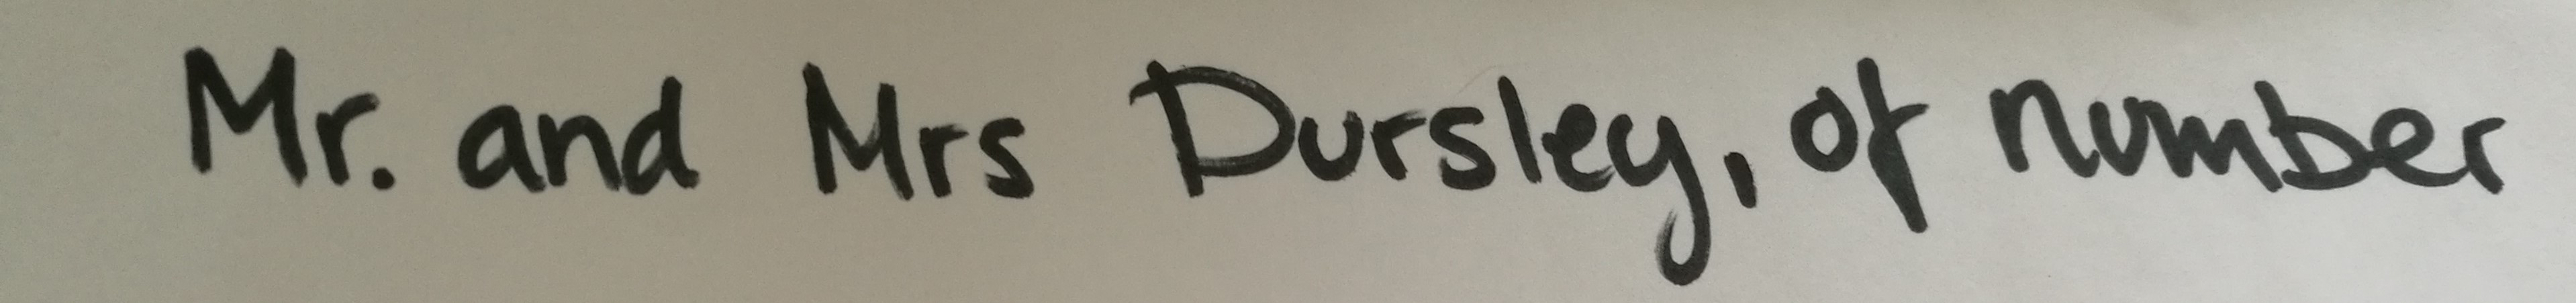 Mr. and Mrs Dursley, of number